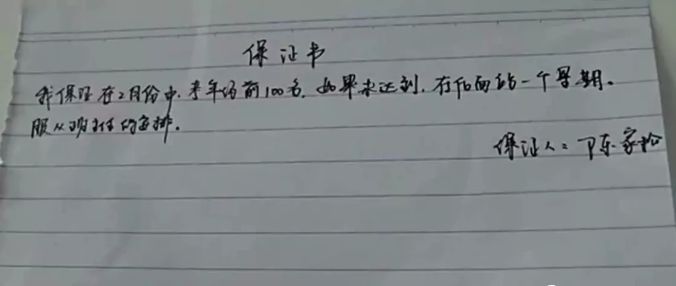 保证书
我保证在2月份中.考年级前100名.如果未达到.在后面站一个星期.
服从班主任的安排.
保证人:陈家